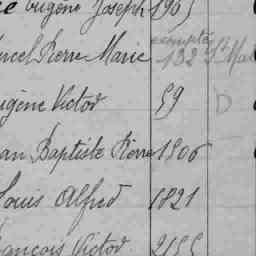 Eugène Joseph 1965
Marcel Pierre Marie exempté 132 St Mar
Eugène Victor 59 D
Jean Baptiste Pierre 1506
Louis Alfred 1821
François Victor 2155